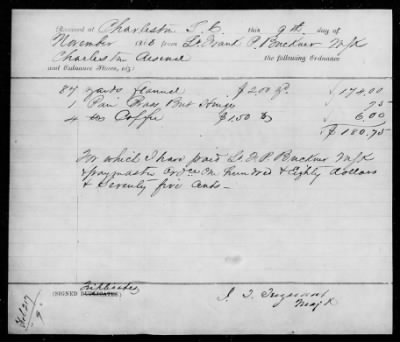 Received at Charleston S. C. this 9th day of
November 186 from Lt. Frank P. Buckner M.S.K
Charleston Arsenal the following Ordnance
and Ordnance Stores, viz:
87 yards flannel $2.00 yd. $174.00
1 Pair Brass But Hinges 75
4 lbs Coffee $1.50 lb 6.00
$180.75
For which I have paid Lt F. P. Buckner M.S.K
& paymaster One Hundred & Eighty dollars
& Seventy five cents
Triplicates
(SIGNED DUPLICATES)
J. T.